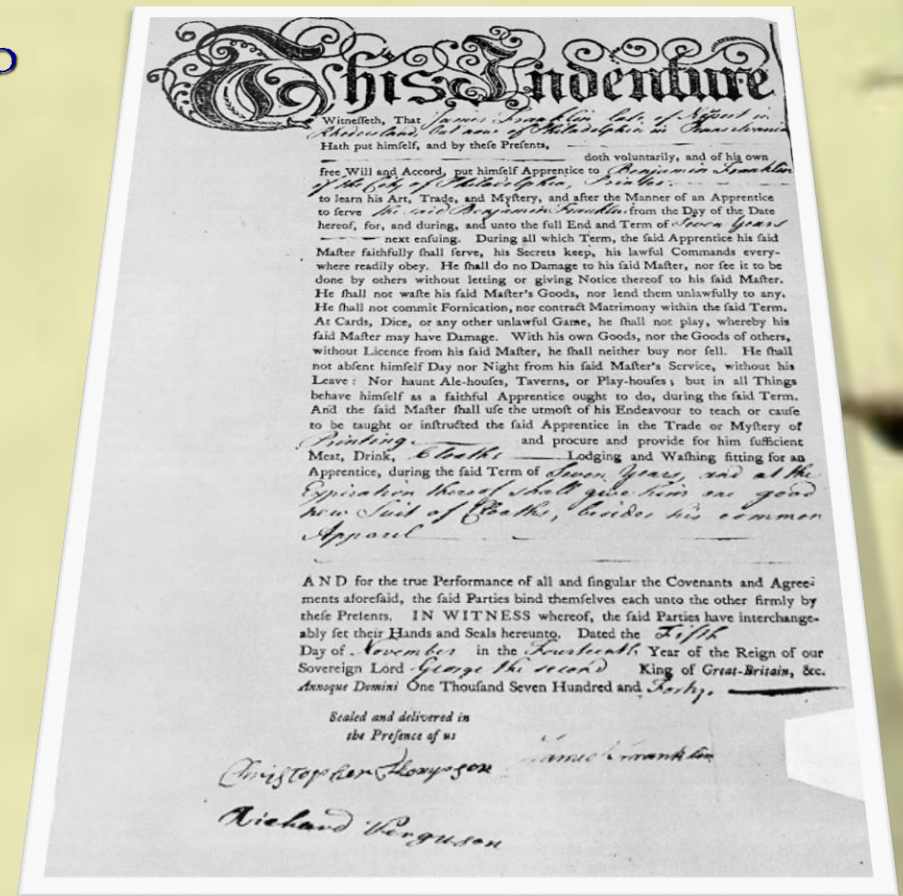 This Indenture
Witneſſeth, That James Franklin late of Newport in
Rhodeisland, but now of Philadelphia in Pennsylvania
Hath put himſelf, and by theſe Preſents,
doth voluntarily, and of his own
free Will and Accord, put himſelf Apprentice to Benjamin Franklin
of the City of Philadelphia, Printer
to learn his Art, Trade, and Myſtery, and after the Manner of an Apprentice
to ſerve the said Benjamin Franklin from the Day of the Date
hereof, for, and during, and unto the full End and Term of Seven Years
next enſuing. During all which Term, the ſaid Apprentice his ſaid
Maſter faithfully ſhall ſerve, his Secrets keep, his lawful Commands every-
where readily obey. He ſhall do no Damage to his ſaid Maſter, nor ſee it to be
done by others without letting or giving Notice thereof to his ſaid Maſter.
He ſhall not waſte his ſaid Maſter's Goods, nor lend them unlawfully to any.
He ſhall not commit Fornication, nor contract Matrimony within the ſaid Term.
At Cards, Dice, or any other unlawful Game, he ſhall not play, whereby his
ſaid Maſter may have Damage. With his own Goods, nor the Goods of others,
without Licence from his ſaid Maſter, he ſhall neither buy nor ſell. He ſhall
not abſent himſelf Day nor Night from his ſaid Maſter's Service, without his
Leave: Nor haunt Ale-houſes, Taverns, or Play-houſes; but in all Things
behave himſelf as a faithful Apprentice ought to do, during the ſaid Term.
And the ſaid Maſter ſhall uſe the utmoſt of his Endeavour to teach or cauſe
to be taught or inſtructed the ſaid Apprentice in the Trade or Myſtery of
Printing and procure and provide for him ſufficient
Meat, Drink, Cloaths Lodging and Waſhing fitting for an
Apprentice, during the ſaid Term of Seven Years, and at the
Expiration thereof shall give him one good
new Suit of Cloaths, besides his common
Apparel
AND for the true Performance of all and ſingular the Covenants and Agree-
ments aforeſaid, the ſaid Parties bind themſelves each unto the other firmly by
theſe Preſents. IN WITNESS whereof, the ſaid Parties have interchange-
ably ſet their Hands and Seals hereunto. Dated the Fifth
Day of November in the Fourteenth Year of the Reign of our
Sovereign Lord George the second King of Great-Britain, &c.
Annoque Domini One Thouſand Seven Hundred and Forty.
Sealed and delivered in
the Preſence of us
James Franklin
Christopher Thompson
Richard Verguson